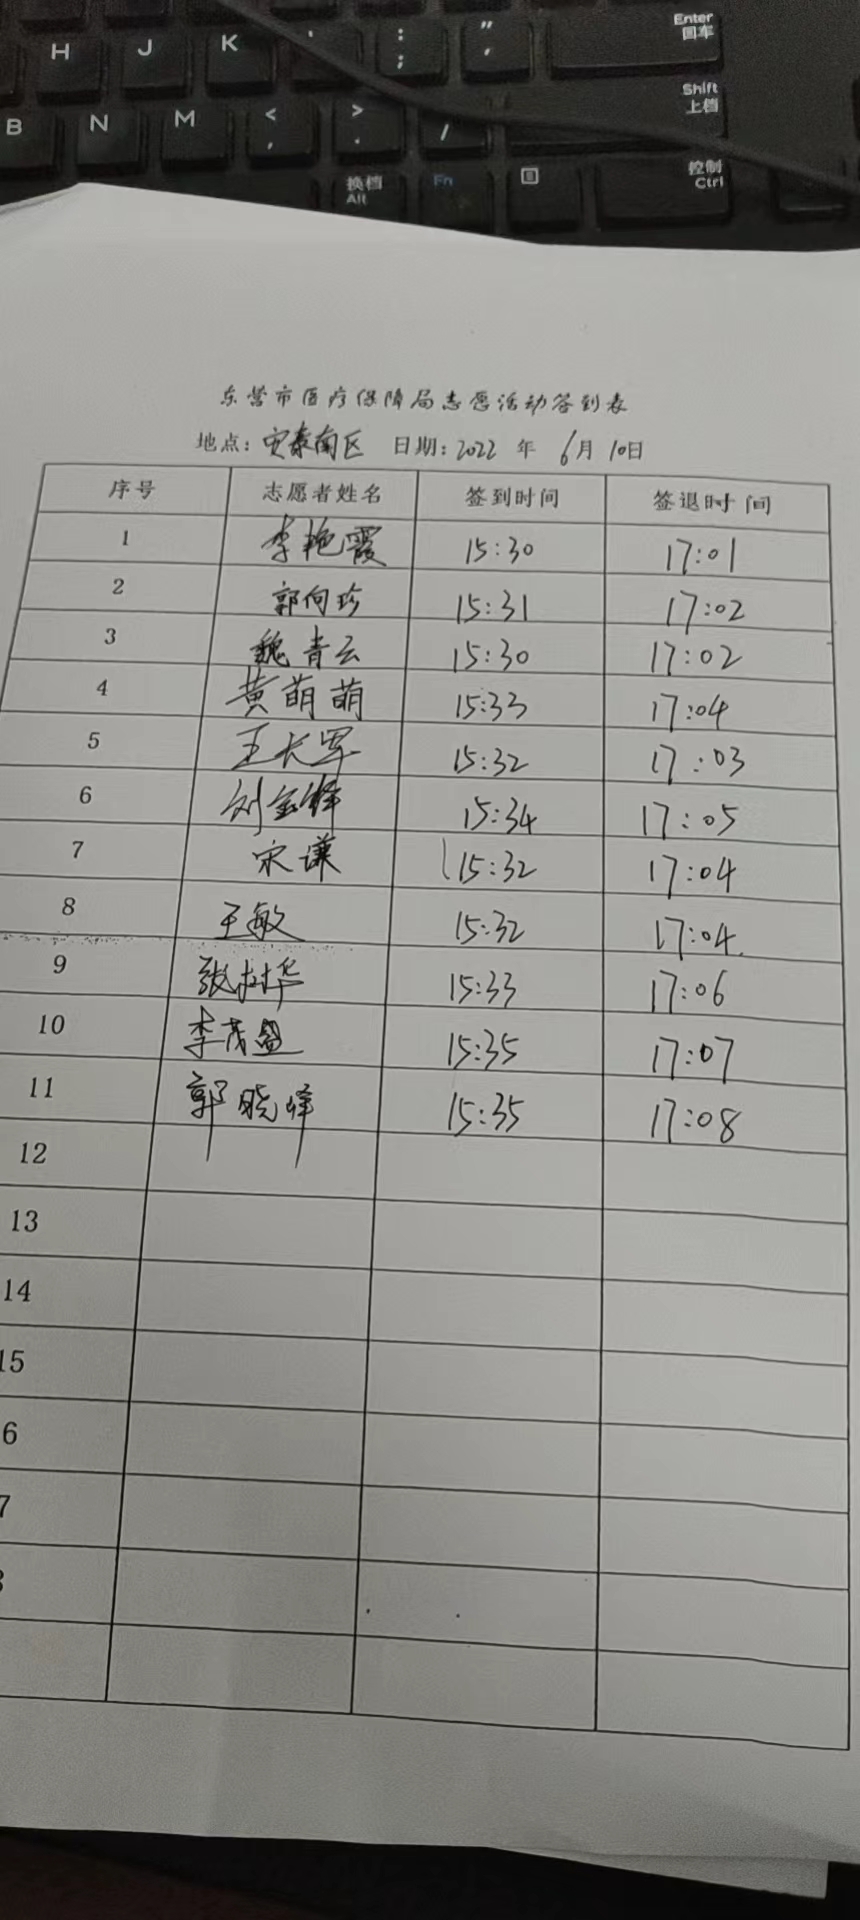 Enter
H J K : "
回车
; ,
Shift
上档
B N M < >
, . /
换档 Fn 控制
Alt Ctrl
东营市医疗保障局志愿活动签到表
地点: 安泰南区 日期: 2022 年 6月 10日
序号 志愿者姓名 签到时间 签退时间
1 李艳霞 15:30 17:01
2 郭向珍 15:31 17:02
3 魏青云 15:30 17:02
4 黄萌萌 15:33 17:04
5 王长军 15:32 17:03
6 刘金锋 15:34 17:05
7 宋谦 15:32 17:04
8 王敏 15:32 17:04.
9 张树华 15:33 17:06
10 李茂盛 15:35 17:07
11 郭晓峰 15:35 17:08
12
13
14
15
6
7